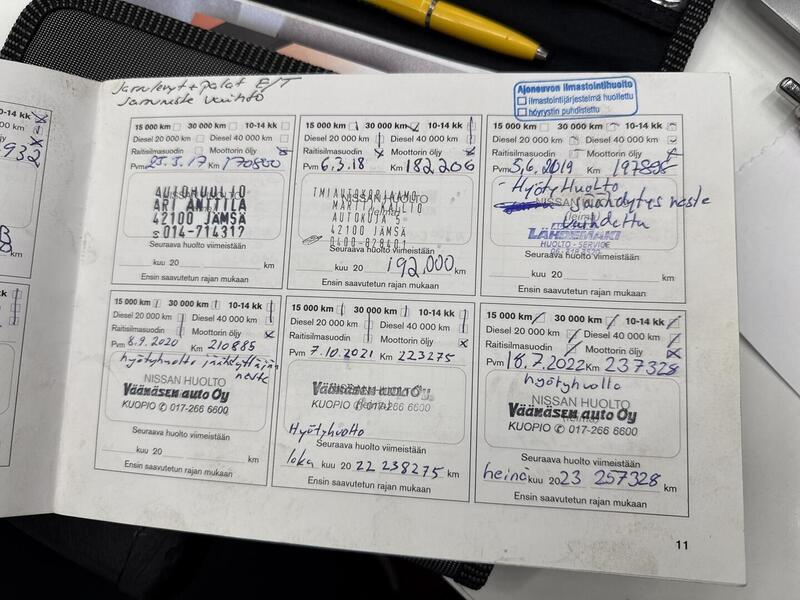 Jarrulevyt + palat E/T
Jarruneste vaihto
Ajoneuvon ilmastointihuolto
ilmastointijärjestelmä huollettu
höyrystin puhdistettu
10-14 kk
40 000 km
Moottorin öljy
932
15 000 km 30 000 km 10-14 kk
Diesel 20 000 km Diesel 40 000 km
Raitisilmasuodin Moottorin öljy
Pvm 23.3.17 Km 170800
AUTOHUOLTO
ARI ANTTILA
42100 JÄMSÄ
014-714317
Seuraava huolto viimeistään
kuu 20 km
Ensin saavutetun rajan mukaan
15 000 km 30 000 km 10-14 kk
Diesel 20 000 km Diesel 40 000 km
Raitisilmasuodin Moottorin öljy
Pvm 6.3.18 Km 182206
NISSAN HUOLTO
TMI AUTOKORJAAMO
MARTTI KALLIO
AUTOKUJA 5
42100 JÄMSÄ
0400-828401
Seuraava huolto viimeistään
kuu 20 192.000 km
Ensin saavutetun rajan mukaan
15 000 km 30 000 km 10-14 kk
Diesel 20 000 km Diesel 40 000 km
Raitisilmasuodin Moottorin öljy
Pvm 5.6.2019 Km 197895
- HyötyHuolto
NISSAN HUOLTO
(leima)
jäähdytys neste
vaihdettu
LÄHDEMÄKI
HUOLTO - SERVICE
Seuraava huolto viimeistään
kuu 20 km
Ensin saavutetun rajan mukaan
15 000 km 30 000 km 10-14 kk
Diesel 20 000 km Diesel 40 000 km
Raitisilmasuodin Moottorin öljy
Pvm 8.9.2020 Km 210885
hyötyhuolto jäähdyttäjän
neste
NISSAN HUOLTO
Väänäsen auto Oy
KUOPIO ✆ 017-266 6600
Seuraava huolto viimeistään
kuu 20 km
Ensin saavutetun rajan mukaan
15 000 km 30 000 km 10-14 kk
Diesel 20 000 km Diesel 40 000 km
Raitisilmasuodin Moottorin öljy
Pvm 7.10.2021 Km 223275
NISSAN HUOLTO
Väänäsen auto Oy
(leima)
KUOPIO ✆ 017-266 6600
Hyötyhuolto
Seuraava huolto viimeistään
loka kuu 20 22 238275 km
Ensin saavutetun rajan mukaan
15 000 km 30 000 km 10-14 kk
Diesel 20 000 km Diesel 40 000 km
Raitisilmasuodin Moottorin öljy
Pvm 18.7.2022 Km 237328
hyötyhuolto
NISSAN HUOLTO
Väänäsen auto Oy
(leima)
KUOPIO ✆ 017-266 6600
Seuraava huolto viimeistään
heinä kuu 2023 257328 km
Ensin saavutetun rajan mukaan
11